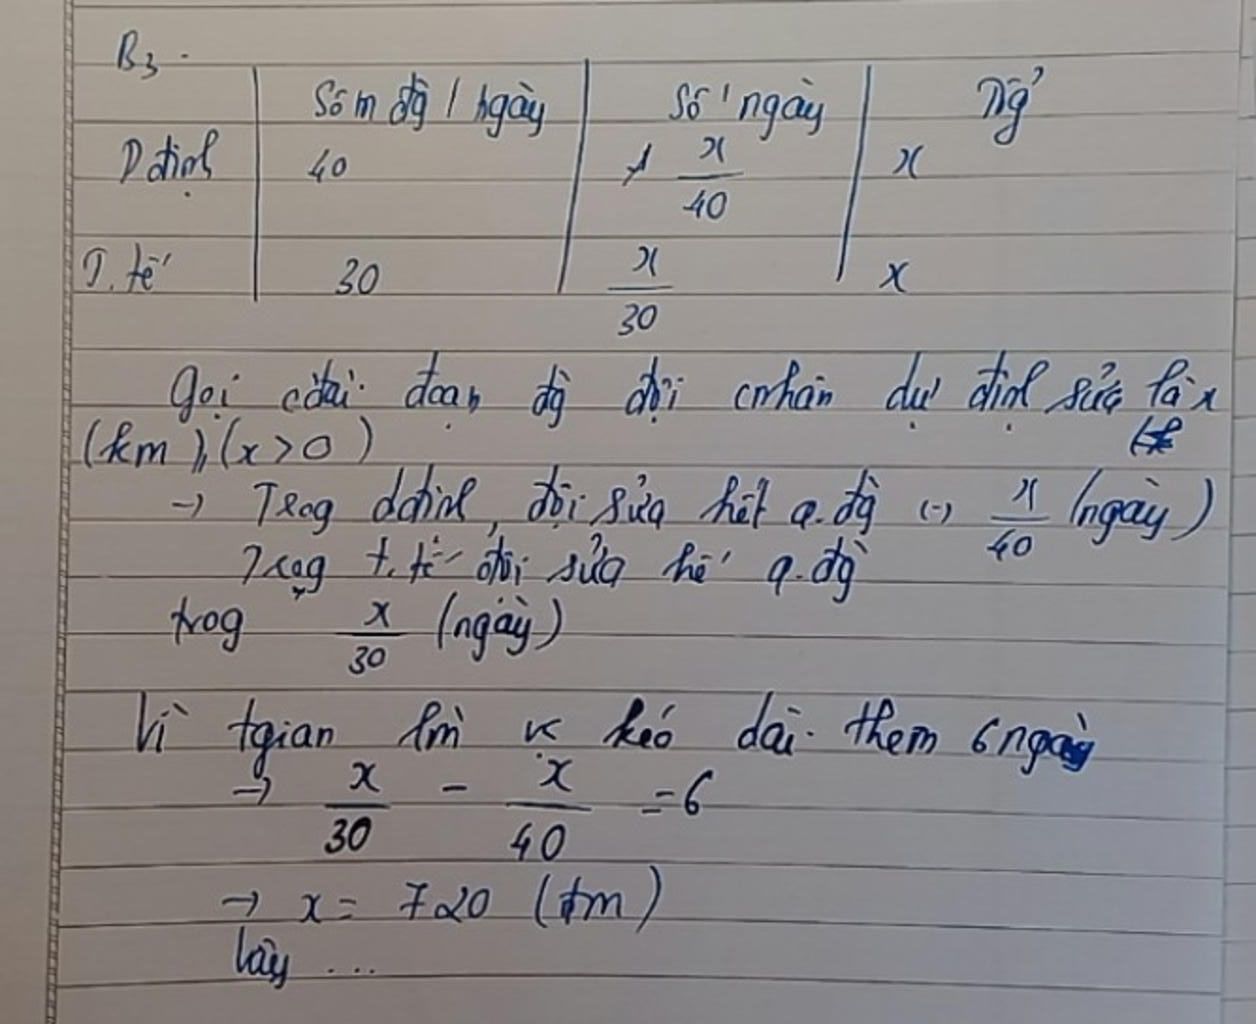 B3.
Số m đg / ngày Số ngày Tổng
D định 40 x/40 x
T. tế 30 x/30 x
Gọi cdài đoạn đg đội cnhân dự định sửa là x
(km), (x>0)
→ Trog ddinh, đội sửa hết q.đg (-) x/40 (ngày)
Trog t.tế đội sửa hế q.đg
trog x/30 (ngày)
Vì tgian lm kéo dài thêm 6 ngày
→ x/30 - x/40 = 6
→ x = 720 (m)
Vậy ...